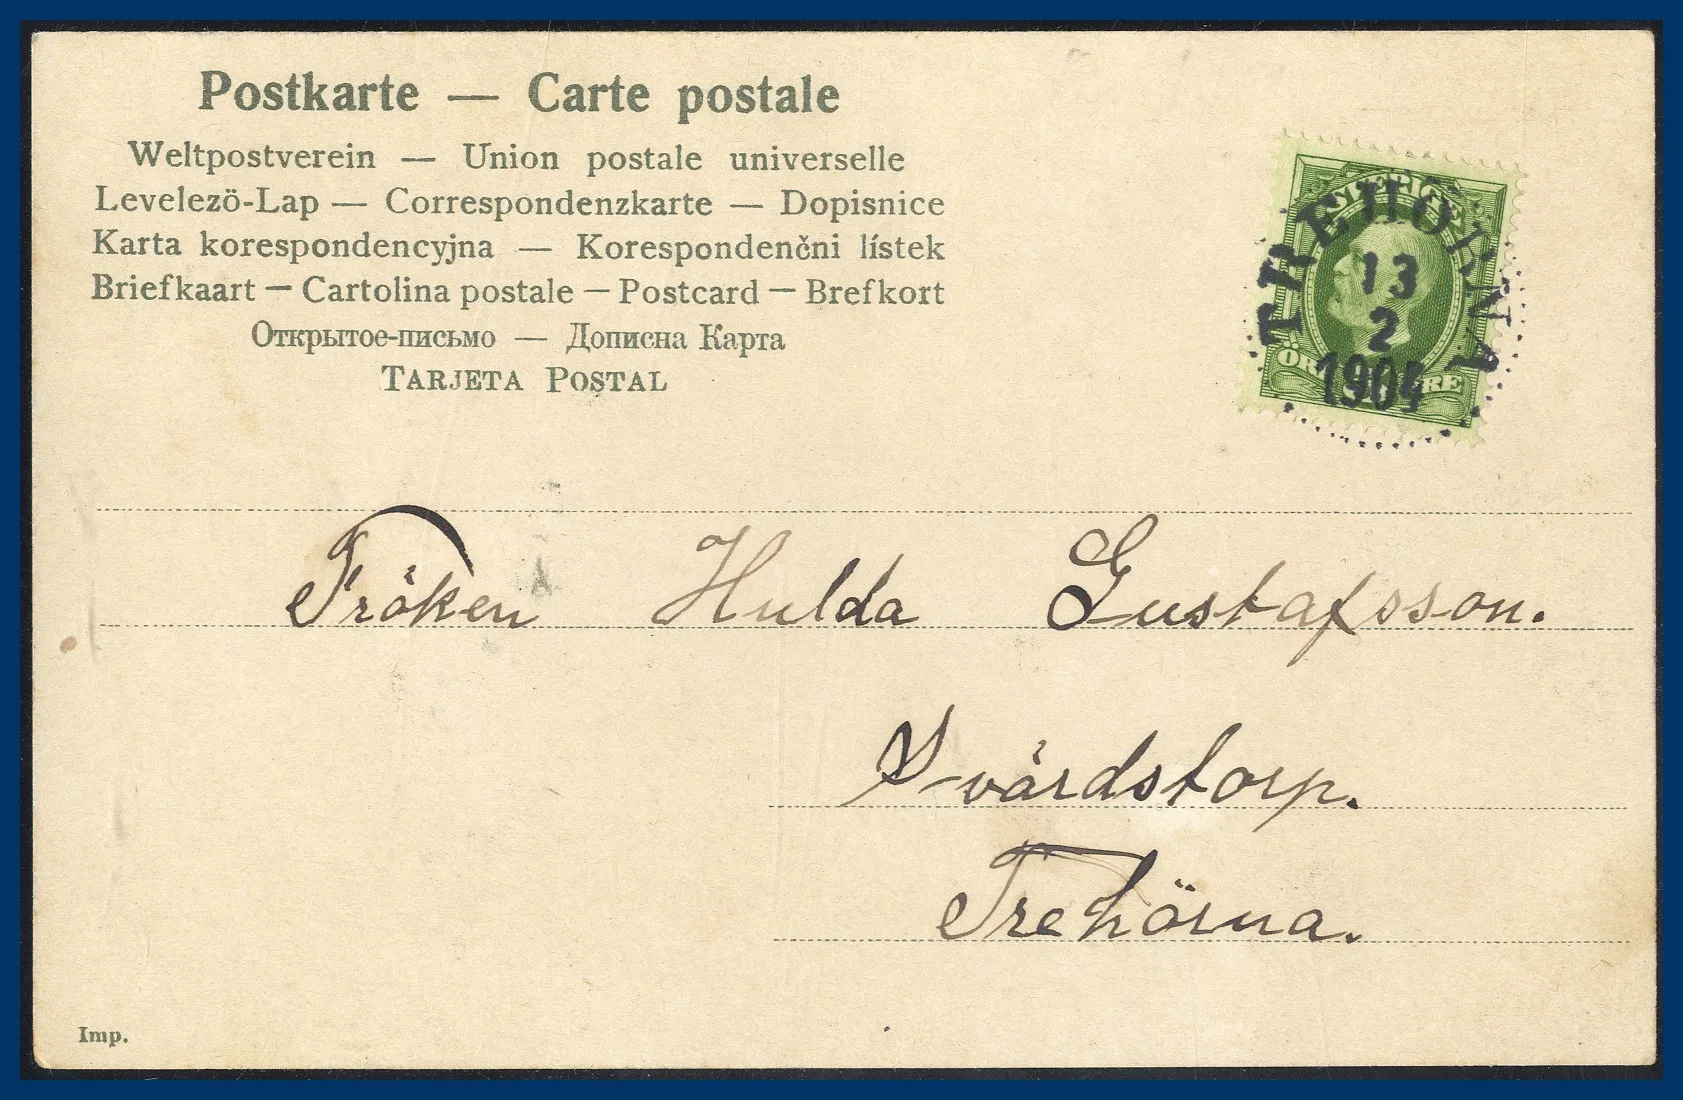 Postkarte — Carte postale
Weltpostverein — Union postale universelle
Levelezö-Lap — Correspondenzkarte — Dopisnice
Karta korespondencyjna — Korespondenčni lístek
Briefkaart — Cartolina postale — Postcard — Brefkort
Открытое-письмо — Дописна Карта
TARJETA POSTAL
SVERIGE
TREHÖRNA
13
2
1904
ÖRE ÖRE
Fröken Hulda Gustafsson.
Svärdstorp.
Trehörna.
Imp.